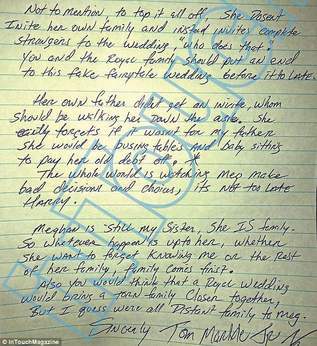 Not to mention to top it all off, She Dosent
Inite her own family and instead invites complete
Strangers to the wedding, who does that.
You and the Royal family should put an end
to this fake fairytale wedding before it to LATE.
Her own father didnt get an invite, whom
Should be walking her Down the aisle. She
easily forgets if it wasnt for my father
She would be busing tables and baby sitting
to pay her old debt off.
The whole World is watching Meg make
bad decisions and choices, its Not too LATE
Harry.
Meghan is Still my Sister, She IS family.
So whatever happen is up to her, whether
She want to forget Knowing me or the Rest
of her family, family comes first.
Also you would think that a Royal Wedding
would bring a torn family closer together,
But I guess were all Distant family to Meg.
Sincerly Tom Markle Jr
© InTouchMagazine